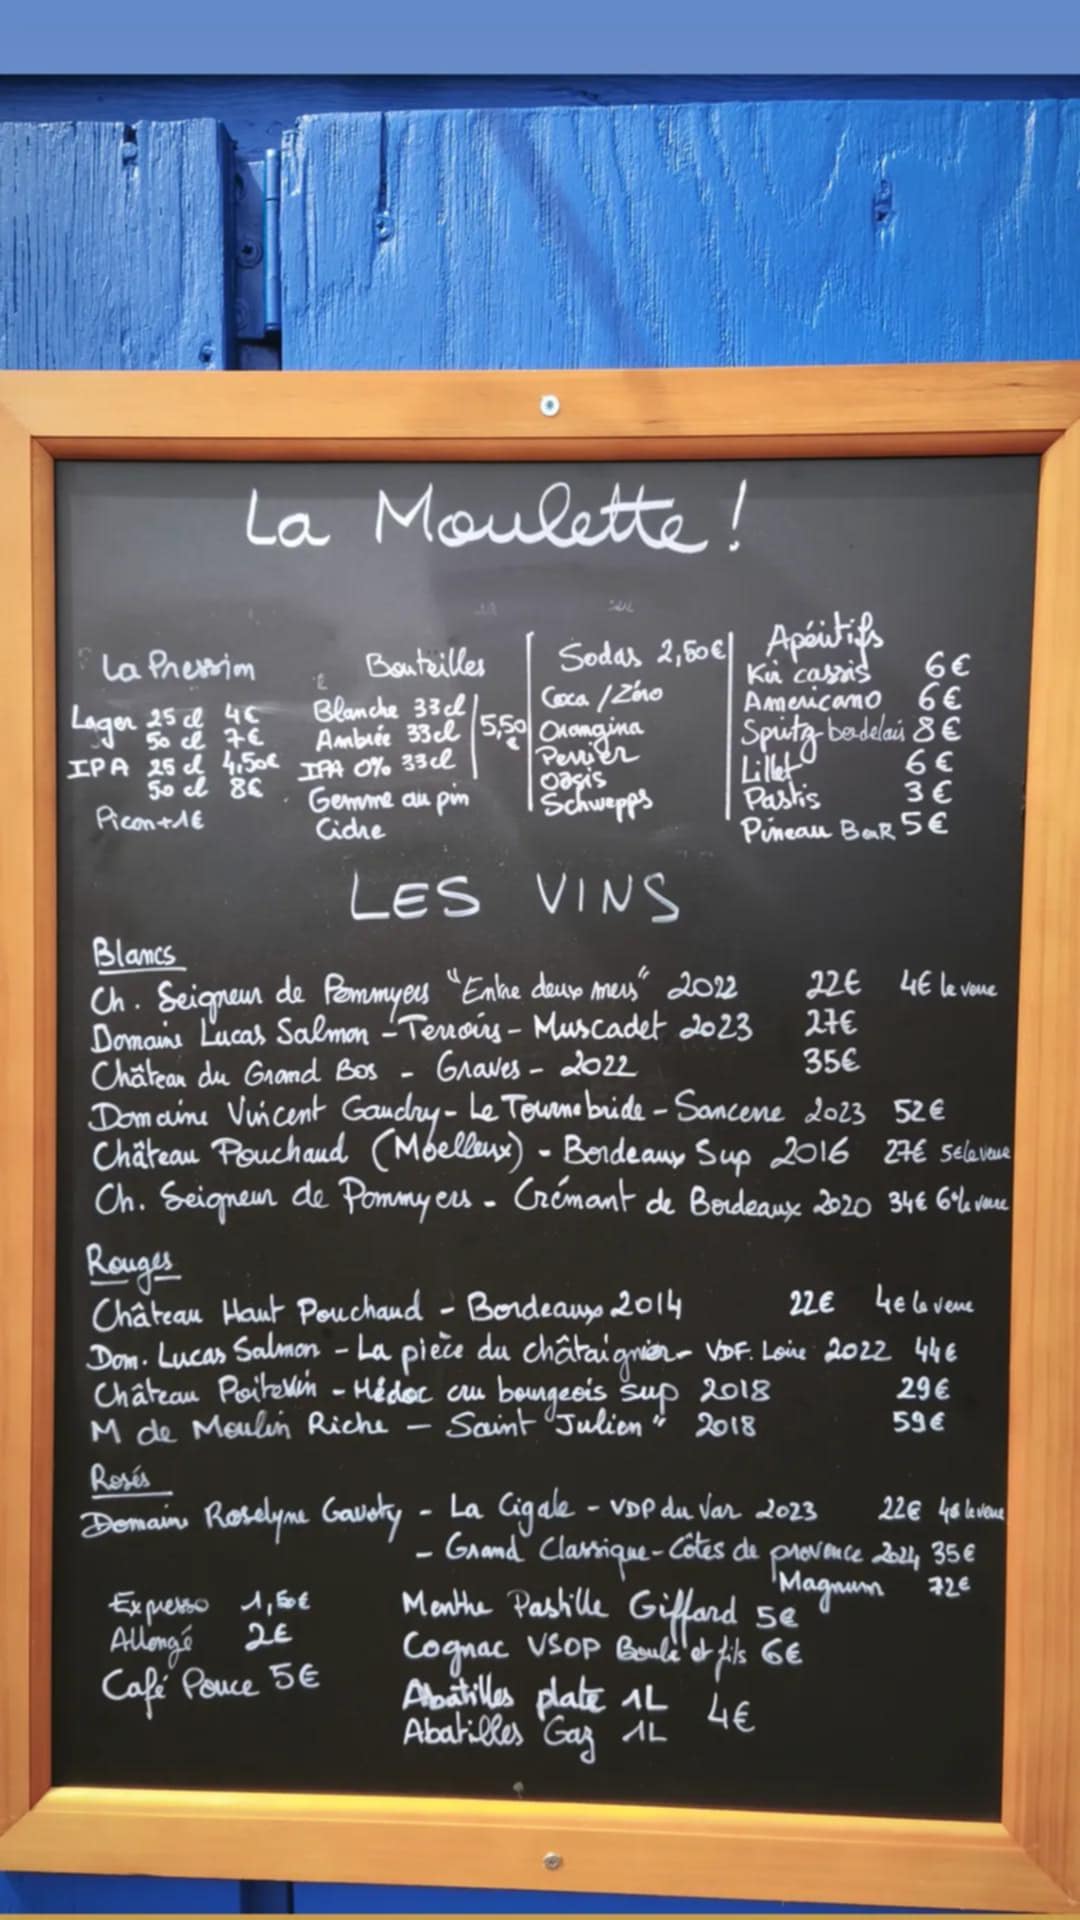 La Moulette !
La Pression
Lager 25 cl 4€
50 cl 7€
IPA 25 cl 4,50€
50 cl 8€
Picon +1€
Bouteilles
Blanche 33cl
Ambrée 33cl
IPA 0% 33cl
5,50€
Gemme au pin
Cidre
Sodas 2,50€
Coca / Zéro
Orangina
Perrier
Oasis
Schwepps
Apéritifs
Kir cassis 6€
Americano 6€
Spritz bordelais 8€
Lillet 6€
Pastis 3€
Pineau BaR 5€
LES VINS
Blancs
Ch. Seigneur de Pommyers "Entre deux mers" 2022 22€ 4€ le verre
Domaine Lucas Salmon - Terroirs - Muscadet 2023 27€
Château du Grand Bos - Graves - 2022 35€
Domaine Vincent Gaudry - Le Tournebride - Sancerre 2023 52€
Château Pouchaud (Moelleux) - Bordeaux Sup 2016 27€ 5€ le verre
Ch. Seigneur de Pommyers - Crémant de Bordeaux 2020 34€ 6€ le verre
Rouges
Château Haut Pouchaud - Bordeaux 2014 22€ 4€ le verre
Dom. Lucas Salmon - La pièce du châtaignier - VDF. Loire 2022 44€
Château Poitevin - Médoc cru bourgeois sup 2018 29€
M de Moulin Riche - Saint "Julien" 2018 59€
Rosés
Domaine Roselyne Gavoty - La Cigale - VDP du Var 2023 22€ 4€ le verre
- Grand Classique - Côtes de provence 2024 35€
Magnum 72€
Expresso 1,50€
Allongé 2€
Café Pouce 5€
Menthe Pastille Giffard 5€
Cognac VSOP Boule et fils 6€
Abatilles plate 1L
Abatilles Gaz 1L
4€